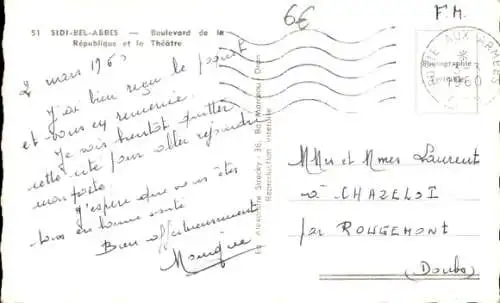 51 SIDI-BEL-ABBES — Boulevard de la
République et le Théâtre
6€
F.M.
POSTE AUX ARMEES
1960
2 mars 1960
J'ai bien reçu le paquet
et vous en remercie.
Je vais bientôt quitter
cette ville pour aller rejoindre
mon poste
J'espère que vous êtes
tous en bonne santé
Bien affectueusement
Ed. Alexandre Sirecky - 36, Bd Marceau, Oran
Reproduction interdite
Mme et Mmes Laurent
à CHAZELOT
par ROUGEMONT
(Doubs)